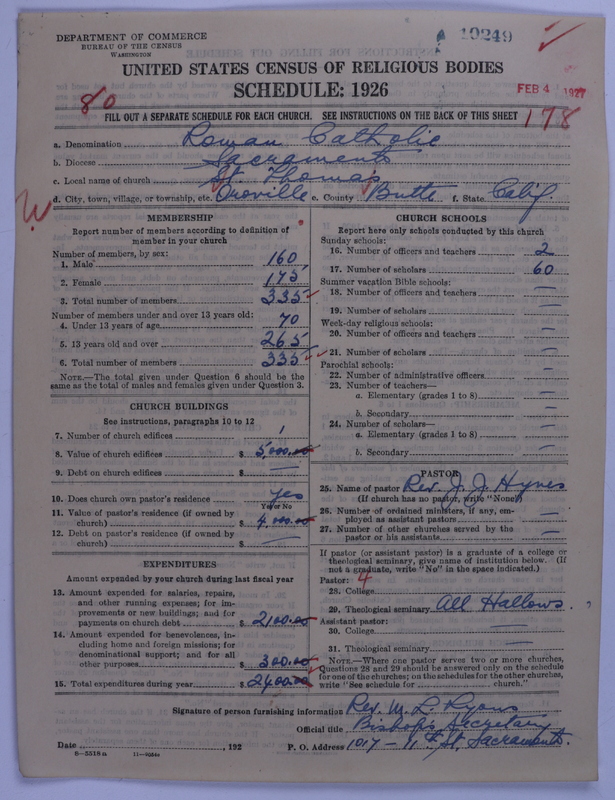 DEPARTMENT OF COMMERCE
BUREAU OF THE CENSUS
WASHINGTON
A 10249
UNITED STATES CENSUS OF RELIGIOUS BODIES
SCHEDULE: 1926
FEB 4 1927
80
178
FILL OUT A SEPARATE SCHEDULE FOR EACH CHURCH. SEE INSTRUCTIONS ON THE BACK OF THIS SHEET
a. Denomination Roman Catholic
b. Diocese Sacramento
c. Local name of church St. Thomas
d. City, town, village, or township, etc. Oroville e. County Butte f. State Calif.
MEMBERSHIP
Report number of members according to definition of
member in your church
Number of members, by sex:
1. Male 160
2. Female 175
3. Total number of members 335
Number of members under and over 13 years old:
4. Under 13 years of age 70
5. 13 years old and over 265
6. Total number of members 335
NOTE.—The total given under Question 6 should be the
same as the total of males and females given under Question 3.
CHURCH BUILDINGS
See instructions, paragraphs 10 to 12
7. Number of church edifices 1
8. Value of church edifices $ 5,000.00
9. Debt on church edifices $ —
10. Does church own pastor's residence yes
Yes or No
11. Value of pastor's residence (if owned by
church) $ 4,000.00
12. Debt on pastor's residence (if owned by
church) $ —
EXPENDITURES
Amount expended by your church during last fiscal year
13. Amount expended for salaries, repairs,
and other running expenses; for im-
provements or new buildings; and for
payments on church debt $ 2100.00
14. Amount expended for benevolences, in-
cluding home and foreign missions; for
denominational support; and for all
other purposes $ 300.00
15. Total expenditures during year $ 2400.00
CHURCH SCHOOLS
Report here only schools conducted by this church
Sunday schools:
16. Number of officers and teachers 2
17. Number of scholars 60
Summer vacation Bible schools:
18. Number of officers and teachers —
19. Number of scholars —
Week-day religious schools:
20. Number of officers and teachers —
21. Number of scholars —
Parochial schools:
22. Number of administrative officers —
23. Number of teachers—
a. Elementary (grades 1 to 8) —
b. Secondary —
24. Number of scholars—
a. Elementary (grades 1 to 8) —
b. Secondary —
PASTOR
25. Name of pastor Rev. J. J. Hynes
(If church has no pastor, write "None")
26. Number of ordained ministers, if any, em-
ployed as assistant pastors —
27. Number of other churches served by the
pastor or his assistants —
If pastor (or assistant pastor) is a graduate of a college or
theological seminary, give name of institution below. (If
not a graduate, write "No" in the space indicated.)
Pastor: 4
28. College
29. Theological seminary All Hallows.
Assistant pastor:
30. College —
31. Theological seminary —
NOTE.—Where one pastor serves two or more churches,
Questions 28 and 29 should be answered only on the schedule
for one of the churches; on the schedules for the other churches,
write "See schedule for church."
Signature of person furnishing information Rev. M. L. Lyons
Official title Bishop's Secretary
Date , 192 P. O. Address 1017 - 11th St, Sacramento.
8—2518a 11—9054a